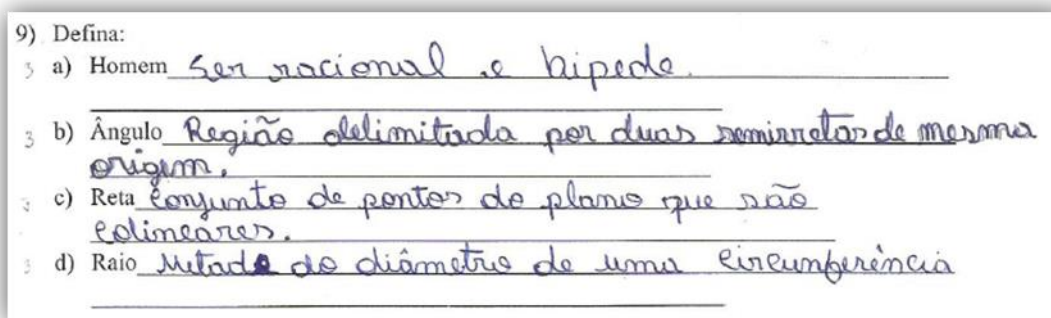 9) Defina:
3 a) Homem Ser racional e bípede.
3 b) Ângulo Região delimitada por duas semirretas de mesma
origem.
3 c) Reta Conjunto de pontos do plano que são
colineares.
3 d) Raio Metade do diâmetro de uma circunferência